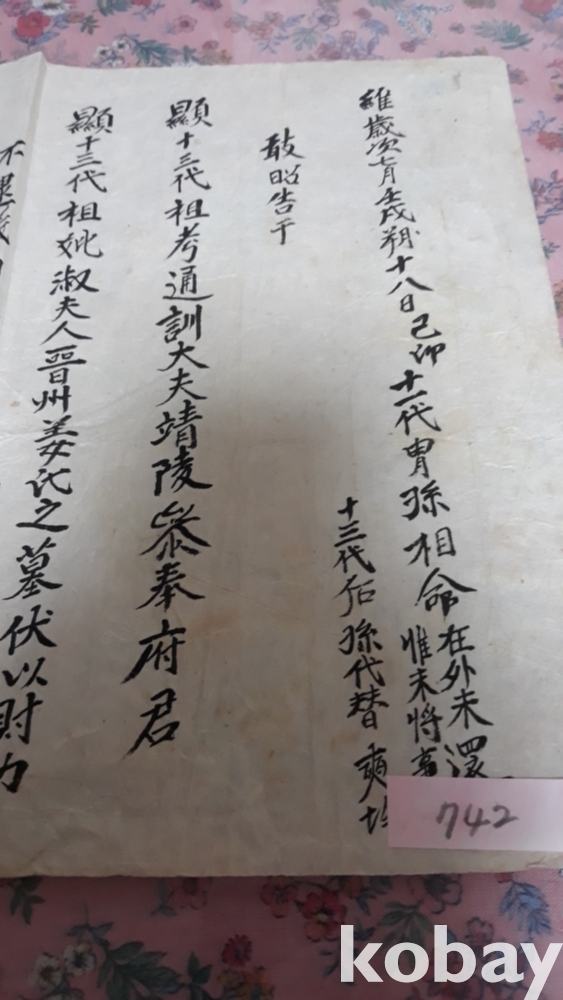 維歲次七月壬戌朔十八日己卯十一代胄孫相命在外未還
惟未將事
十三代后孫代替 奭
敢昭告于
顯十三代祖考通訓大夫靖陵叅奉府君
顯十三代祖妣淑夫人晉州姜氏之墓伏以財力
不
742
kobay